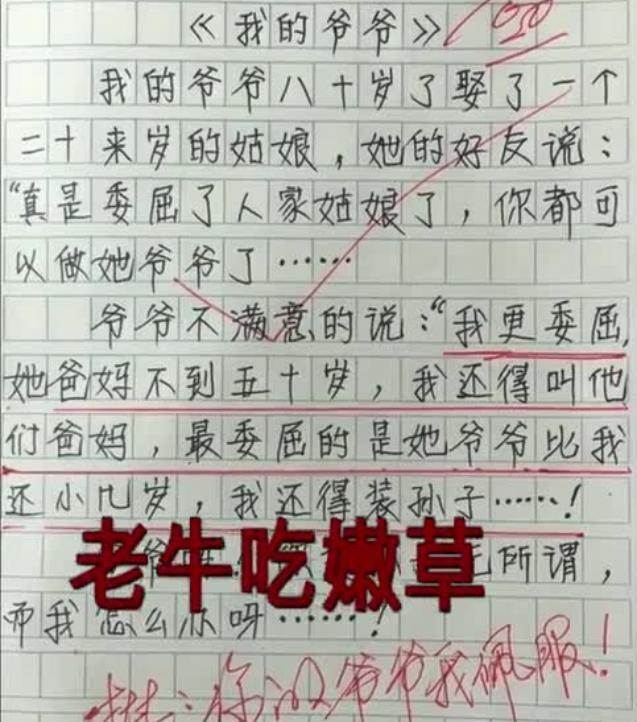 《我的爷爷》
我的爷爷八十岁了娶了一个
二十来岁的姑娘，她的好友说：
“真是委屈了人家姑娘了，你都可
以做她爷爷了……
爷爷不满意的说：“我更委屈,
她爸妈不到五十岁，我还得叫他
们爸妈，最委屈的是她爷爷比我
还小几岁，我还得装孙子……！
老牛吃嫩草
所谓，
而我怎么办呀……！
批：你的爷爷我佩服！